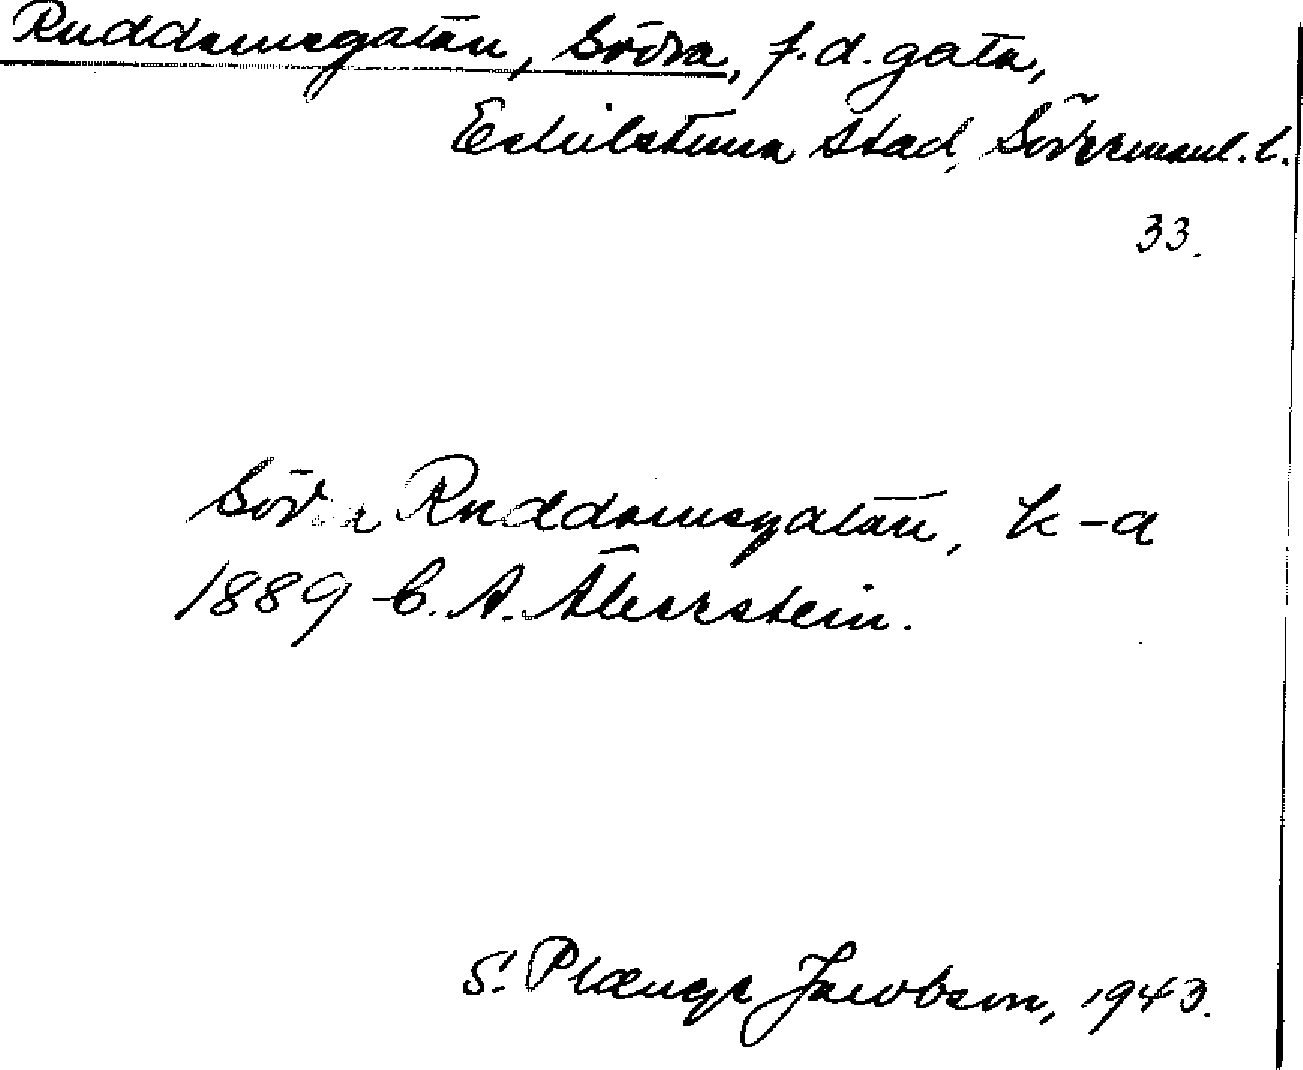 Ruddamsgatan, Södra, f.d. gata,
Eskilstuna stad, Södermanl. l.
33.
Södra Ruddamsgatan, k-a
1889 C. A. Åkerstein.
S. Plænge Jacobson, 1943.